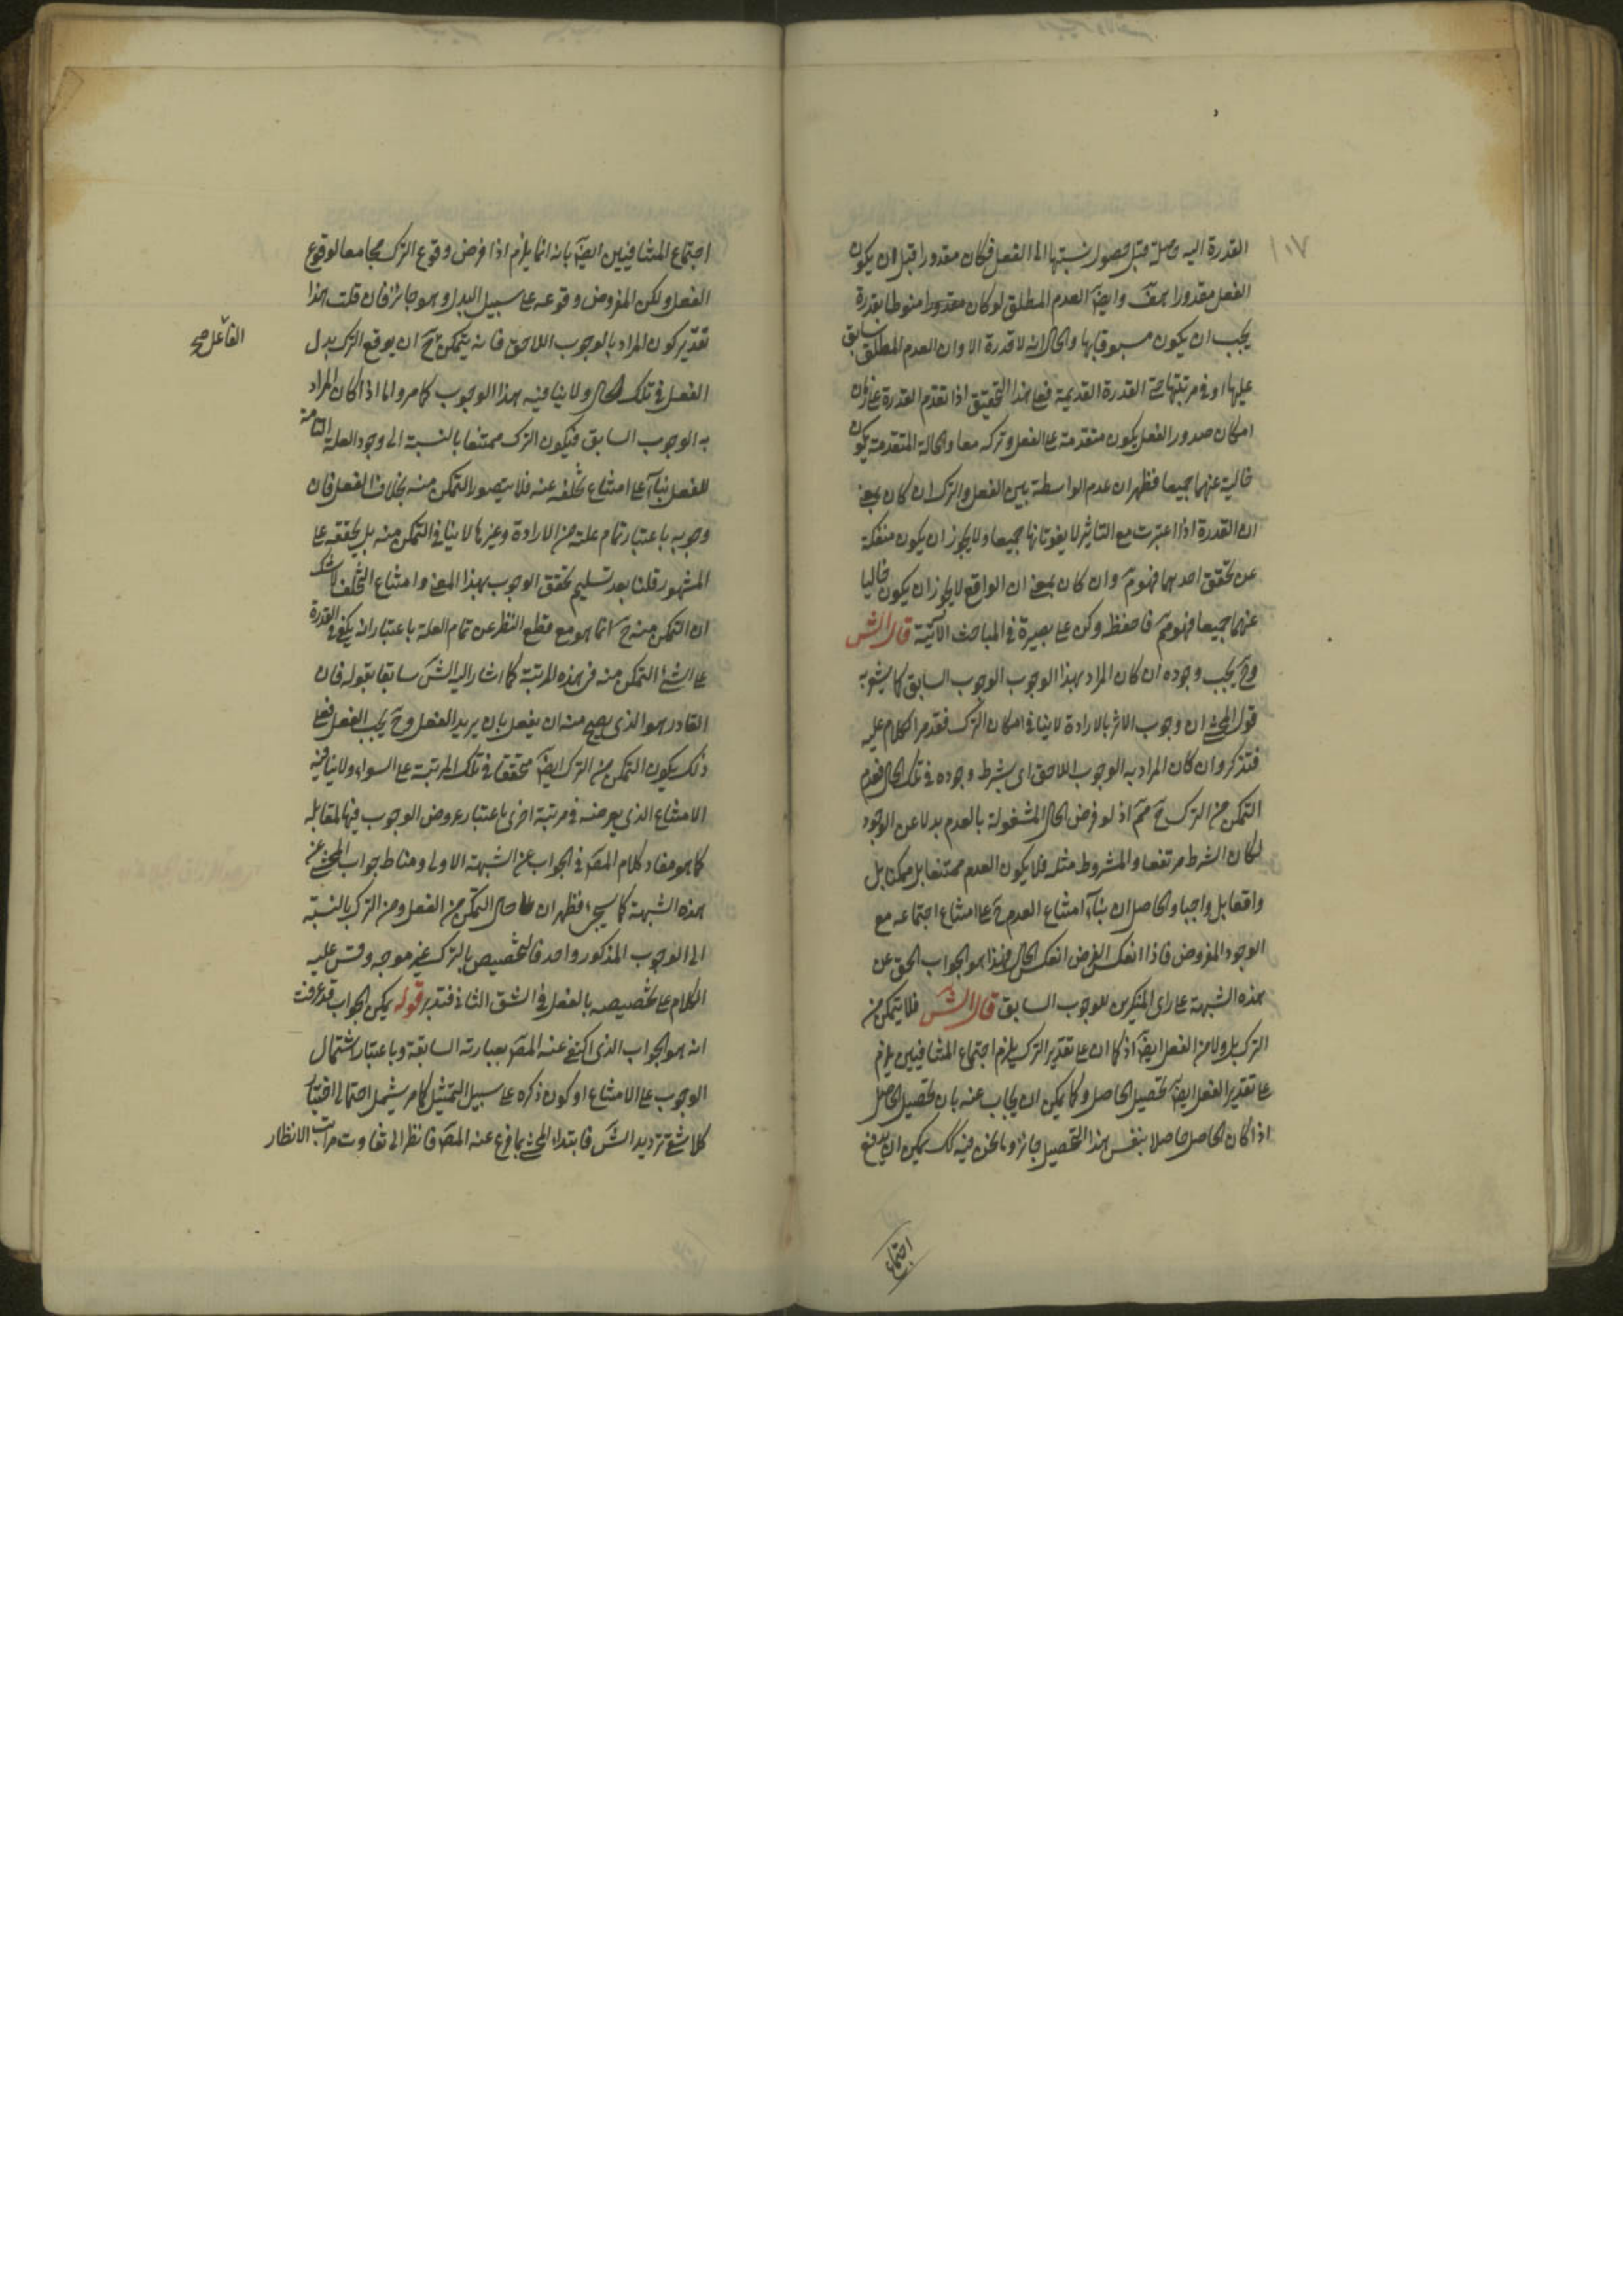 ١٠٧
القدرة اليه وصلة قبل حصول نسبتها الى الفعل فكان مقدورا قبل ان يكون
الفعل مقدورا هف وايضا العدم المطلق لو كان مقدورا منوطا بقدرة
يجب ان يكون مسبوقا بها والحال انه لا قدرة الا وان العدم المطلق سابق
عليها او في مرتبتها حتى القدرة القديمة فعلى هذا التحقيق اذا تقدم القدرة على زمان
امكان صدور الفعل يكون متقدمة على الفعل وتركه معا والحالة المتقدمة يكون
خالية عنهما جميعا فظهر ان عدم الواسطة بين الفعل والترك ان كان بمعنى
ان القدرة اذا اعتبرت مع التاثير لا يفوتانها جميعا ولا يجوز ان يكون منفكة
عن تحقق احدهما فهو مم وان كان بمعنى ان الواقع لا يجوز ان يكون خاليا
عنهما جميعا فهو مم فاحفظ وكن على بصيرة في المباحث الآتية قال الش
وح يجب وجوده ان كان المراد بهذا الوجوب الوجوب السابق كما يشعر به
قول المحشي ان وجوب الاثر بالارادة لا ينافي امكان الترك فقد مر الكلام عليه
فتذكر وان كان المراد به الوجوب اللاحق اى بشرط وجوده في تلك الحال فعدم
التمكن من الترك ح مم اذ لو فرض الحال المشغولة بالعدم بدلا عن الوجود
لكان الشرط مرتفعا والمشروط مثله فلا يكون العدم ممتنعا بل ممكنا بل
واقعا بل واجبا والحاصل ان بناء امتناع العدم ح على امتناع اجتماعه مع
الوجود المفروض فاذا انعكس الفرض انعكس الحال فهذا هو الجواب الحق عن
هذه الشبهة على راى المنكرين للوجوب السابق قال الش فلا يتمكن من
الترك بل ولا من الفعل ايضا اذ كما ان على تقدير الترك يلزم اجتماع المتنافيين يلزم
على تقدير الفعل ايضا تحصيل الحاصل وكما يمكن ان يجاب عنه بان تحصيل الحاصل
اذا كان الحاصل حاصلا بنفس هذا التحصيل جائز وما نحن فيه كك يمكن ان يدفع
اجتماع
اجتماع المتنافيين ايضا بانه انما يلزم اذا فرض وقوع الترك مجامعا لوقوع
الفعل ولكن المفروض وقوعه على سبيل البدل وهو جائز فان قلت هذا
تقدير كون المراد بالوجوب اللاحق فانه يتمكن ح ان يوقع الترك بدل
الفاعل صح
الفعل في تلك الحال ولا ينافيه هذا الوجوب كما مر واما اذا كان المراد
به الوجوب السابق فيكون الترك ممتنعا بالنسبة الى وجود العلة التامة
للفعل بناء على امتناع تخلفه عنه فلا يتصور التمكن منه بخلاف الفعل فان
وجوبه باعتبار تمام علته من الارادة وغيرها لا ينافي التمكن منه بل يحققه على
المشهور قلنا بعد تسليم تحقق الوجوب بهذا المعنى وامتناع التخلف لا شك
ان التمكن منه ح انما هو مع قطع النظر عن تمام العلة باعتبار انه يكفي في القدرة
على الشئ التمكن منه في هذه المرتبة كما اشار اليه الش سابقا بقوله فان
القادر هو الذي يصح منه ان يفعل بان يريد الفعل وح يجب الفعل فعلى
ذلك يكون التمكن من الترك ايضا متحققا في تلك المرتبة على السواء ولا ينافيه
الامتناع الذي يعرضه في مرتبة اخرى باعتبار عروض الوجوب فيها لمقابله
كما هو مفاد كلام المص في الجواب عن الشبهة الاولى ومناط جواب المحشي عن
هذه الشبهة كما سيجئ فظهر ان حال التمكن من الفعل ومن الترك بالنسبة
الى الوجوب المذكور واحد فالتخصيص بالترك غير موجه وقس عليه
الكلام على تخصيصه بالفعل في الشق الثاني فتدبر قوله يمكن الجواب قد عرفت
انه هو الجواب الذي اكتفى عنه المص بعبارته السابقة وباعتبار اشتمال
الوجوب على الامتناع او كون ذكره على سبيل التمثيل كما مر يشمل احتمالي اختيار
كلا شقي ترديد الش فابتداء المحشي بما فرغ عنه المص فانظر الى تفاوت مراتب الانظار